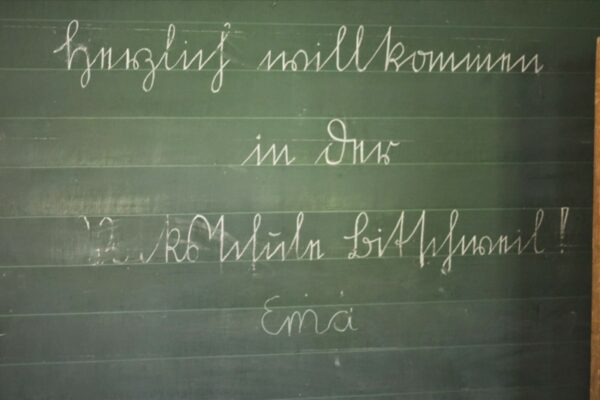 Herzlich willkommen
in der
Volksschule Bitschweil!